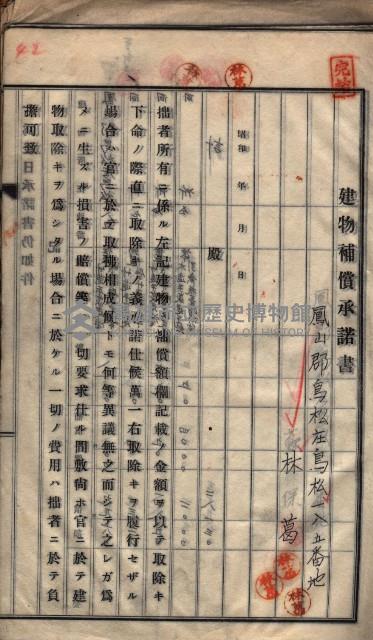 建物補償承諾書
鳳山郡鳥松庄鳥松一八五番地
林 葛
昭和 年 月 日
殿
拙者所有ニ係ル左記建物ハ補償額欄記載ノ金額ヲ以テ取除キ
下命ノ際直ニ取除キノ義承諾仕候萬一右取除キヲ履行セザル
場合ハ官ニ於テ取 相成候トモ何等異議無之而シテ之レガ為
メニ生ズル損害ノ賠償等 一切要求仕ル間敷尚ホ官ニ於テ建
物取除キヲ為シタル場合ニ於ケル一切ノ費用ハ拙者ニ於テ負
擔可致 日承諾書仍如件
42
歷史博物館
MUSEUM OF HISTORY